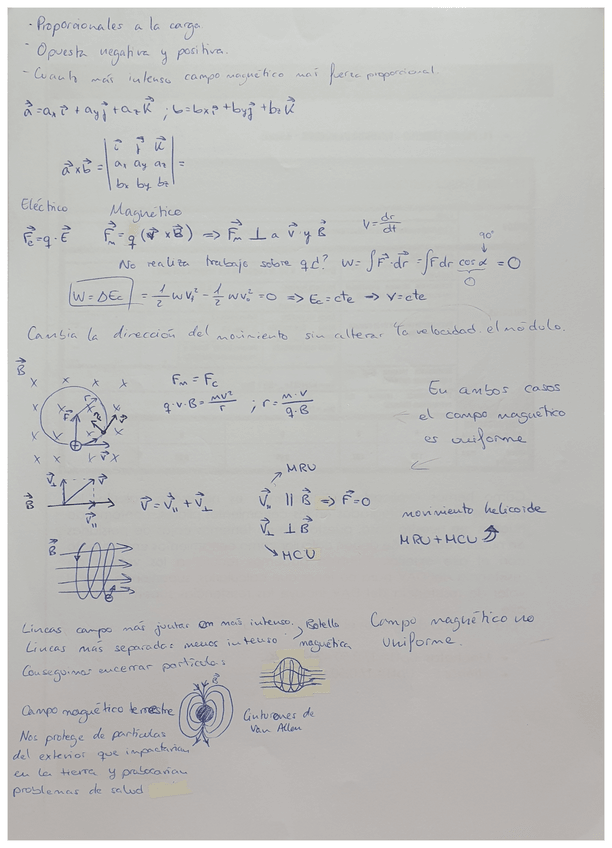 - Proporcionales a la carga
- Opuesta negativa y positiva.
- Cuanto más intenso campo magnético más fuerza proporcional.
a⃗ = aₓ i⃗ + a_y j⃗ + a_z k⃗ ; b = bₓ i⃗ + b_y j⃗ + b_z k⃗
a⃗ x b⃗ = | i⃗ j⃗ k⃗ | =
| aₓ a_y a_z |
| bₓ b_y b_z |
Eléctrico Magnético
F⃗e = q · E⃗ F⃗m = q (v⃗ x B⃗) => F⃗m ⊥ a v⃗ y B⃗ V = dr⃗/dt
90°
No realiza trabajo sobre q? W = ∫ F⃗ · dr⃗ = ∫ F dr cos α = 0
0
W = ΔEc = 1/2 m v₁² - 1/2 m v₀² = 0 => Ec = cte => v = cte
Cambia la dirección del movimiento sin alterar la velocidad el módulo.
B⃗
Fm = Fc
q · v · B = mv²/r ; r = m · v / q · B
En ambos casos
el campo magnético
es uniforme
V⃗⊥ V⃗ B⃗ V⃗∥
V⃗ = V⃗∥ + V⃗⊥
MRU
V⃗∥ ∥ B⃗ => F⃗ = 0
V⃗⊥ ⊥ B⃗
MCU
movimiento helicoide
MRU + MCU
B⃗
Lineas campo más juntar más intenso. Botella
Lineas más separadas menos intenso magnética
Conseguimos encerrar particulas
Campo magnético no
uniforme.
B⃗
Campo magnético terrestre
Cinturones de
Van Allen
Nos protege de particulas
del exterior que impactarian
en la tierra y probocarian
problemas de salud